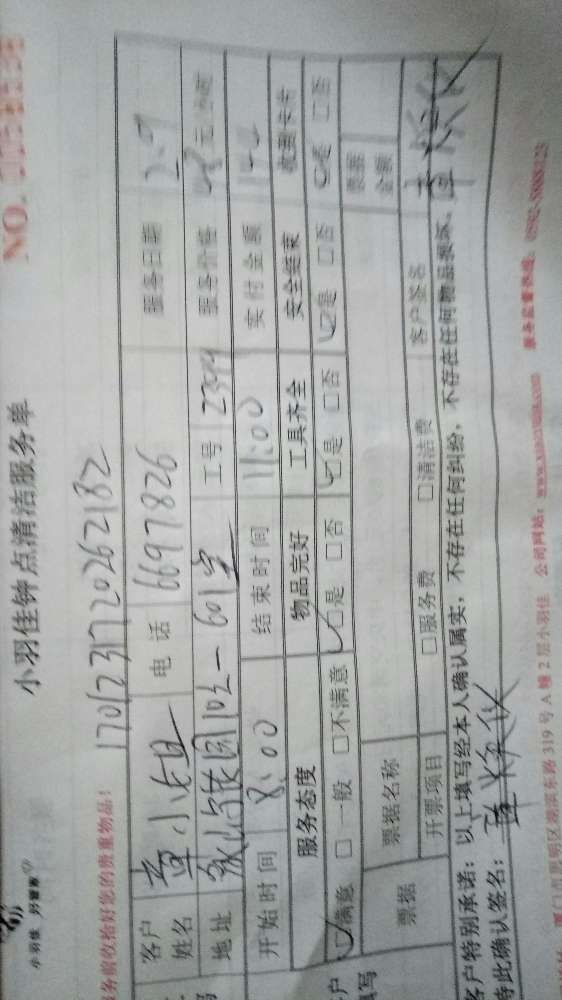 小羽佳 好管家
小羽佳钟点清洁服务单
NO.
1701231720262182
服务前收拾好您的贵重物品!
客户姓名 童小姐 电话 6697826 服务日期 2.9
地址 601室 工号 服务价格 48元
开始时间 8:00 结束时间 11:00 实付金额 144
服务态度 物品完好 工具齐全 安全结束 收费卡片
☑满意 □一般 □不满意 ☑是 □否 ☑是 □否 ☑是 □否 ☑是 □否
票据 票据名称 票据金额
开票项目 □服务费 □清洁费 客户签名
客户特别承诺:以上填写经本人确认属实,不存在任何纠纷,不存在任何物品损坏,
特此确认签名:
厦门市思明区湖滨东路319号A幢2层小羽佳 公司网站: 服务监督热线: